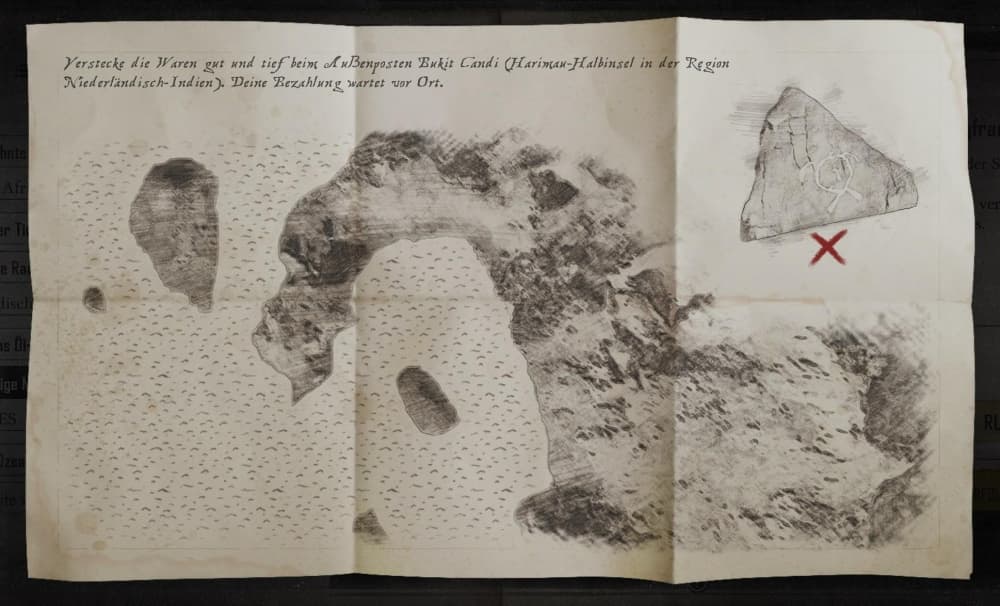 Verstecke die Waren gut und tief beim Außenposten Bukit Candi (Harimau-Halbinsel in der Region
Niederländisch-Indien). Deine Bezahlung wartet vor Ort.